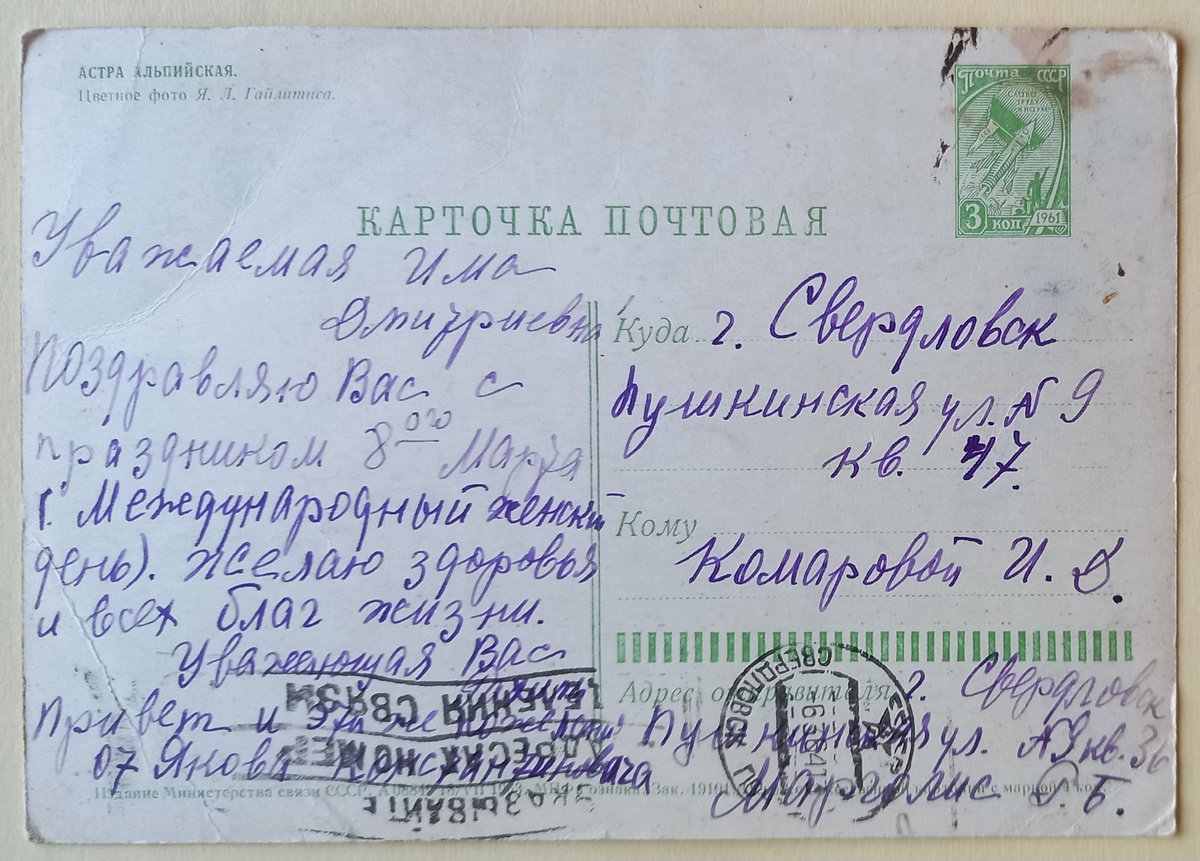 АСТРА АЛЬПИЙСКАЯ.
Цветное фото Я. Л. Гайлитиса.
Почта СССР
СЛАВА
ТРУДУ
И НАУКЕ
3 коп
1961
КАРТОЧКА ПОЧТОВАЯ
Уважаемая Има
Дмитриевна
Поздравляю Вас с
праздником 8ого Марта
(. Международный женский
день). Желаю здоровья
и всех благ жизни.
Уважающая Вас
Привет и
от Якова Константиновича
Куда г. Свердловск
Пушкинская ул. № 9
кв. 47.
Кому
Комаровой И. Д.
Адрес отправителя г. Свердловск
Пушкинская ул. №9 кв. 36
Маргулис Р Б.
Издание Министерства связи СССР.
СВЕРДЛОВСК
АДРЕСАХ НОМЕР
ДЕЛЕНИЯ СВЯЗИ